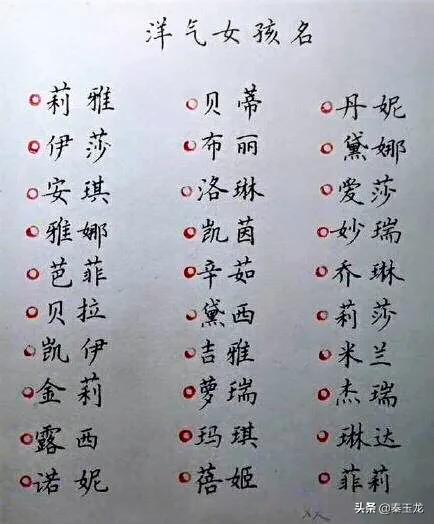 洋气女孩名
莉雅 贝蒂 丹妮
伊莎 布丽 黛娜
安琪 洛琳 爱莎
雅娜 凯茵 妙瑞
芭菲 辛茹 乔琳
贝拉 黛西 莉莎
凯伊 吉雅 米兰
金莉 萝瑞 杰瑞
露西 玛琪 琳达
诺妮 蓓姬 菲莉
头条 @秦玉龙